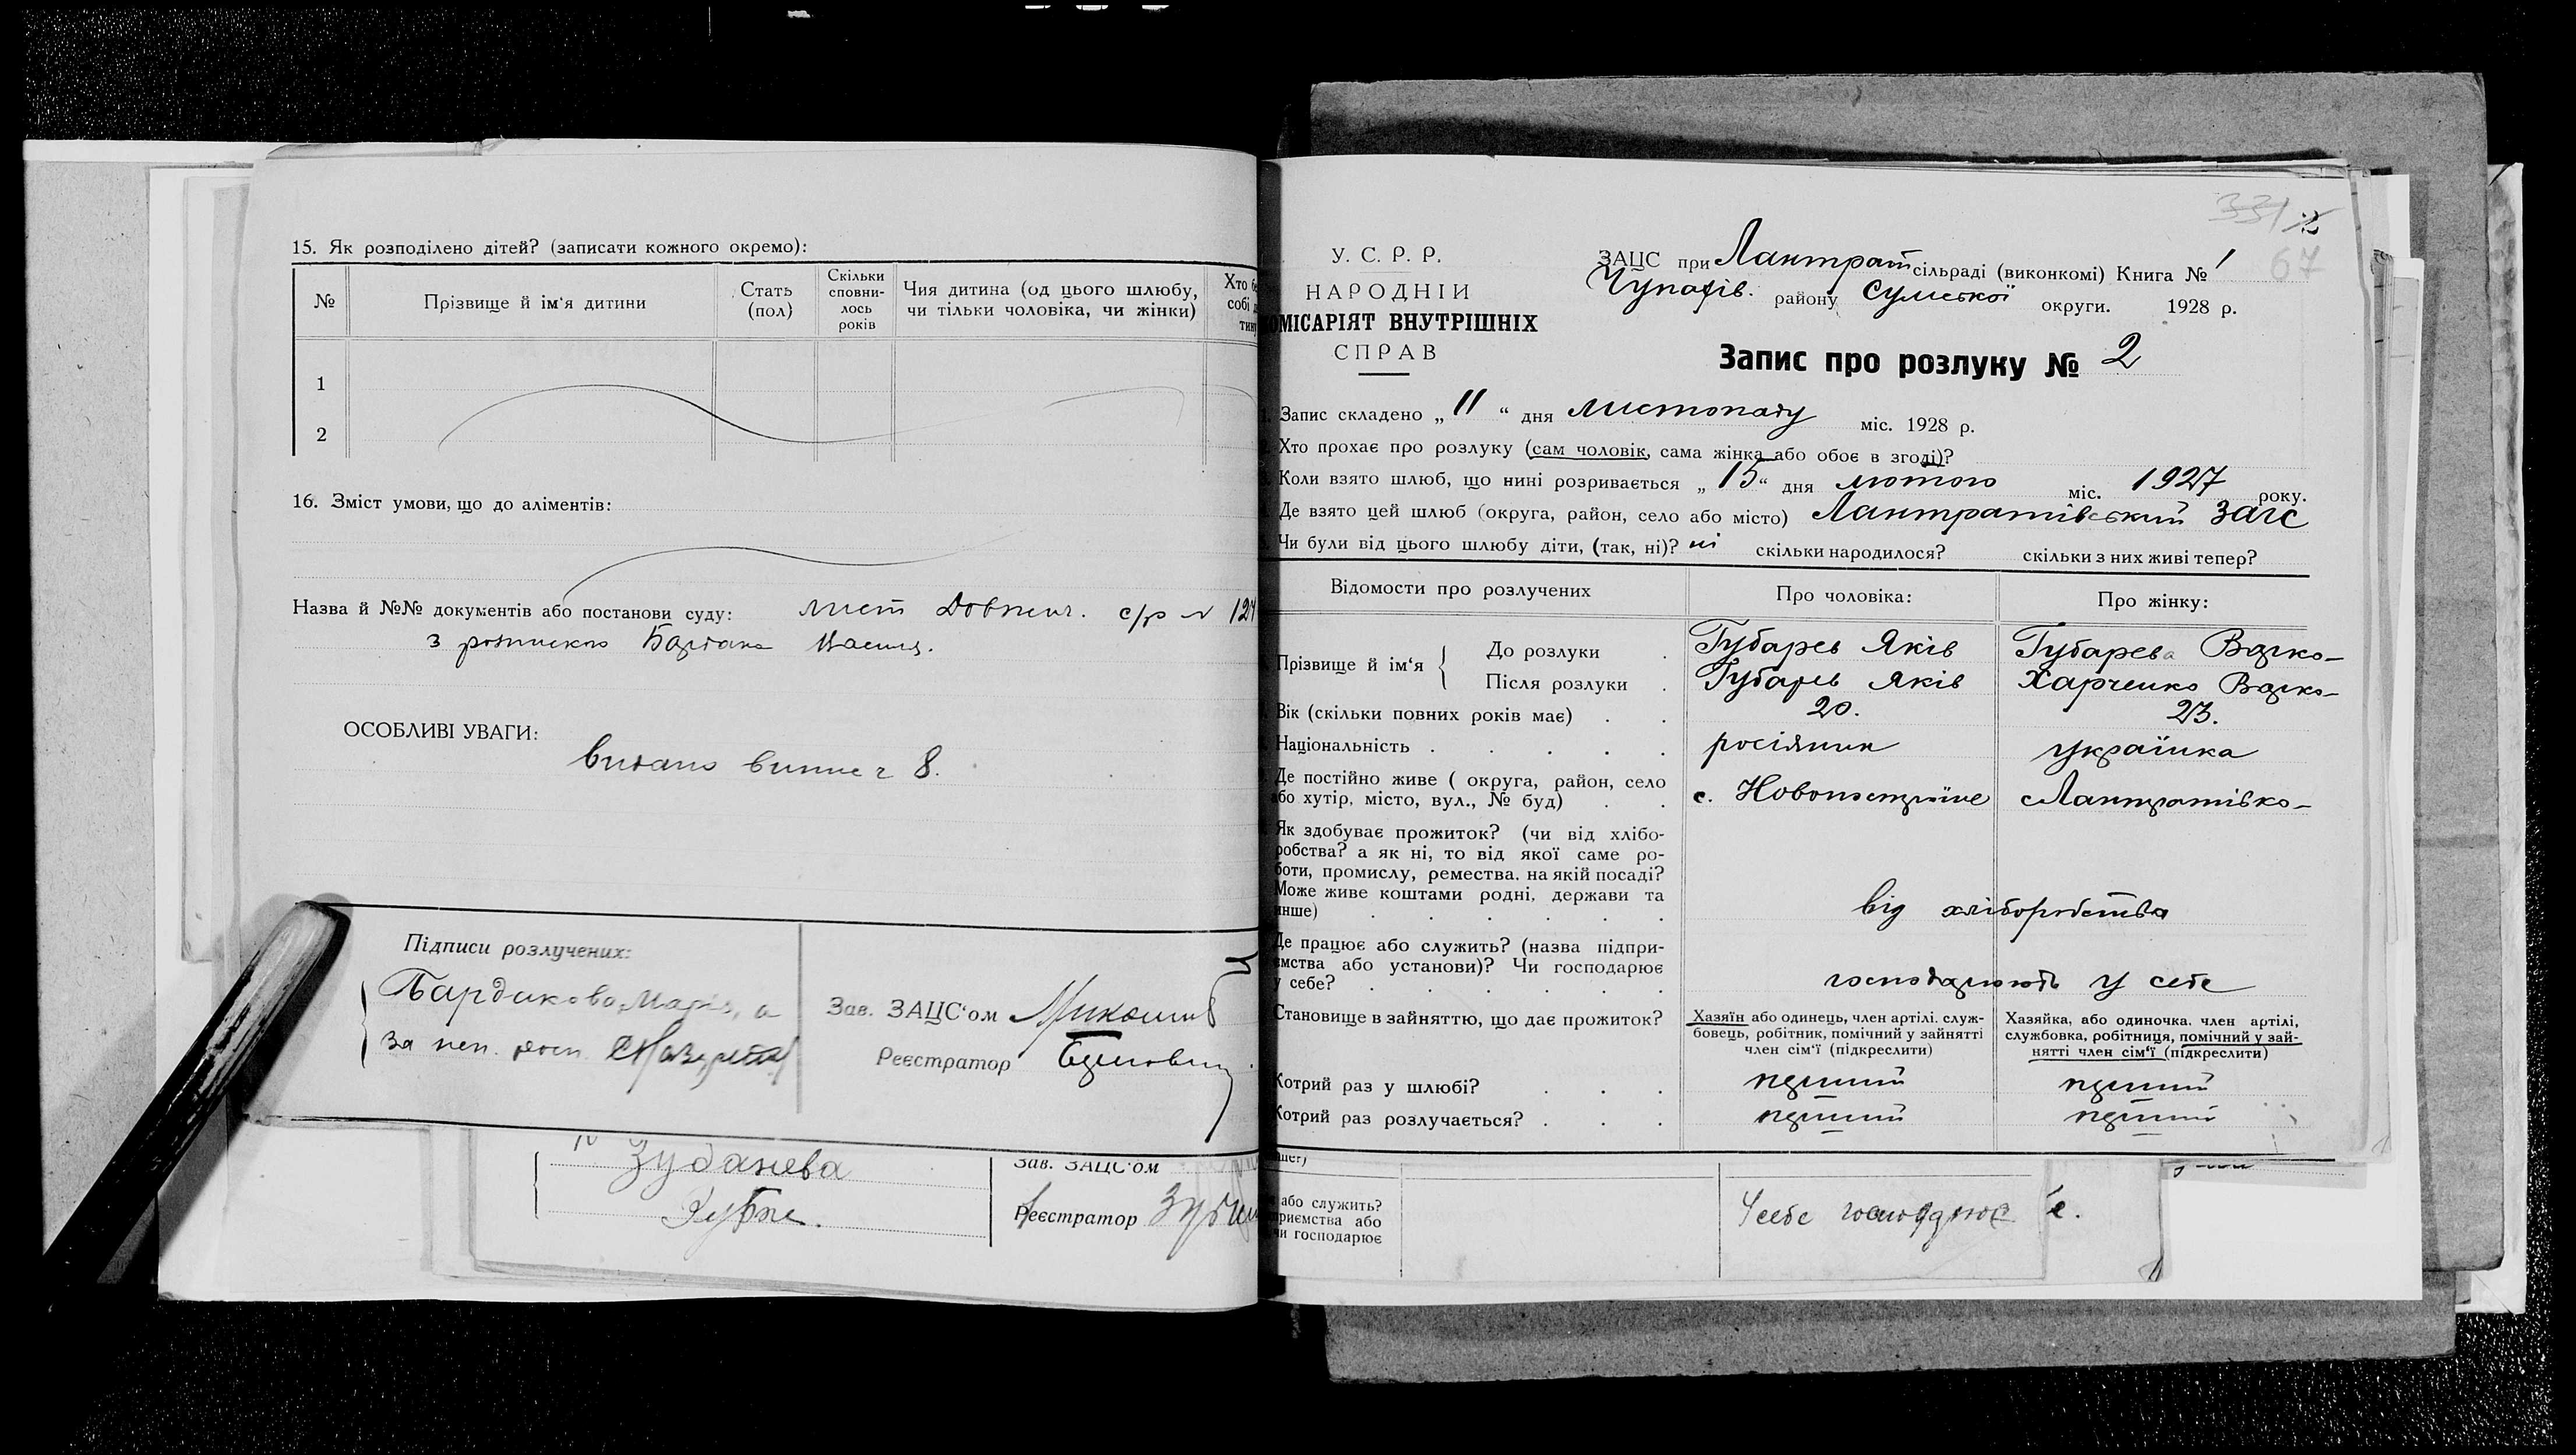 15. Як розподілено дітей? (записати кожного окремо):
№ Прізвище й ім'я дитини Стать (пол) Скільки сповни- лось років Чия дитина (од цього шлюбу, чи тільки чоловіка, чи жінки) Хто собі
1
2
16. Зміст умови, що до аліментів:
Назва й №№ документів або постанови суду: лист Довжич. с/р № 124
з розпискою
ОСОБЛИВІ УВАГИ:
видано 8.
Підписи розлучених:
Бардакова Марія, а
За неп. росп.
Зав. ЗАЦС'ом
Реєстратор
Зубанева
Зав. ЗАЦС'ом
Реєстратор
331 2
67
У. С. Р. Р.
НАРОДНІЙ
КОМІСАРІЯТ ВНУТРІШНІХ
СПРАВ
ЗАЦС при Лантрат сільраді (виконкомі) Книга № 1
Чупахів. району Сумської округи. 1928 р.
Запис про розлуку № 2
Запис складено „ 11 “ дня листопаду міс. 1928 р.
Хто прохає про розлуку (сам чоловік, сама жінка або обоє в згоді)?
Коли взято шлюб, що нині розривається „ 15 “ дня лютого міс. 1927 року.
Де взято цей шлюб (округа, район, село або місто) Лантратівський загс
Чи були від цього шлюбу діти, (так, ні)? ні скільки народилося? скільки з них живі тепер?
Відомости про розлучених Про чоловіка: Про жінку:
Прізвище й ім'я
До розлуки Губарев Яків Губарева
Після розлуки Губарев Яків Харченко
Вік (скільки повних років має) 20. 23.
Національність росіянин українка
Де постійно живе ( округа, район, село
або хутір, місто, вул., № буд) с. с Лантратівка
Як здобуває прожиток? (чи від хлібо-
робства? а як ні, то від якої саме ро-
боти, промислу, ремества, на якій посаді?
Може живе коштами родні, держави та
инше) від хліборобства
Де працює або служить? (назва підпри-
ємства або установи)? Чи господарює
у себе? господарюють у себе
Становище в зайняттю, що дає прожиток?
Хазяїн або одинець, член артілі, служ-
бовець, робітник, помічний у зайнятті
член сім'ї (підкреслити)
Хазяйка, або одиночка, член артілі,
службовка, робітниця, помічний у зай-
нятті член сім'ї (підкреслити)
Котрий раз у шлюбі? перший перший
Котрий раз розлучається? перший перший
або служить?
приємства або
чи господарює
У себе господарює